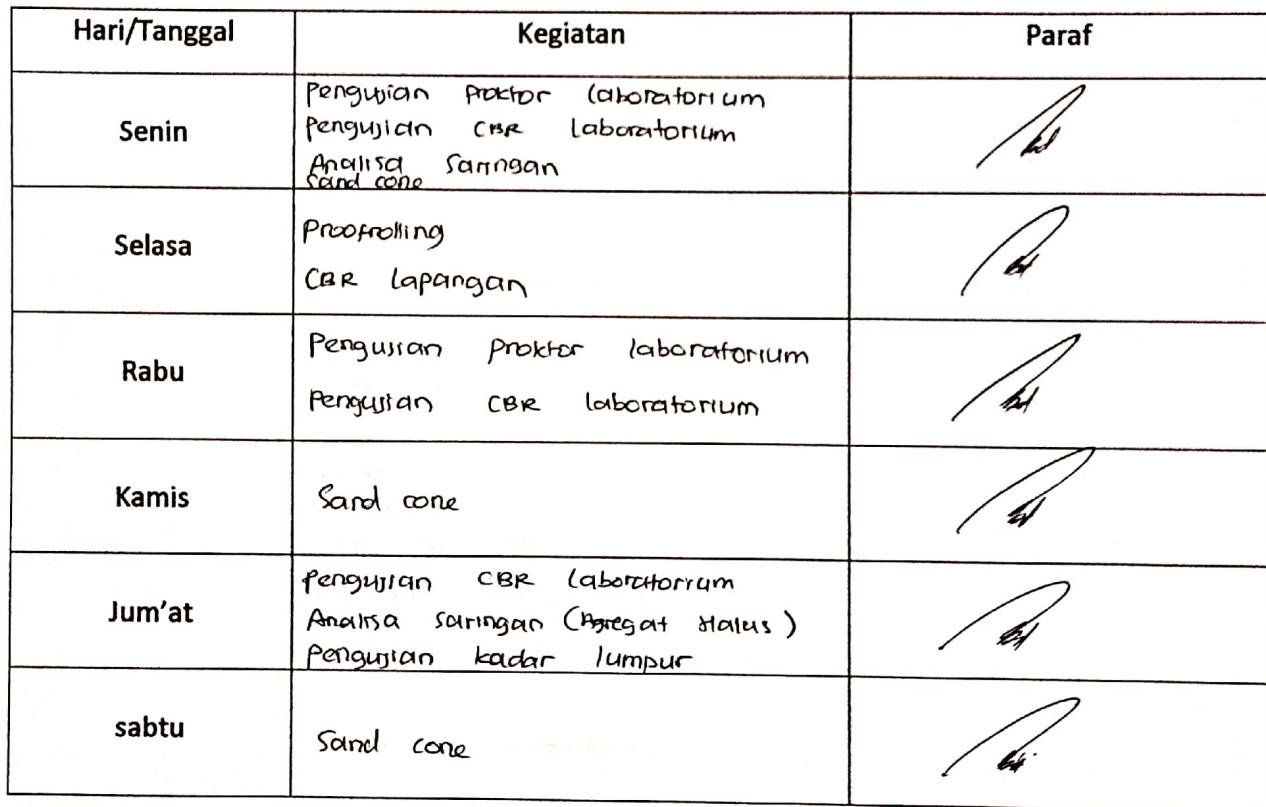 Hari/Tanggal Kegiatan Paraf
Senin
Pengujian Proktor laboratorium
Pengujian CBR laboratorium
Analisa saringan
Sand cone
Selasa
Proofrolling
CBR lapangan
Rabu
Pengujian Proktor laboratorium
Pengujian CBR laboratorium
Kamis
Sand cone
Jum'at
Pengujian CBR laboratorium
Analisa saringan (Agregat Halus)
Pengujian kadar lumpur
sabtu
Sand cone